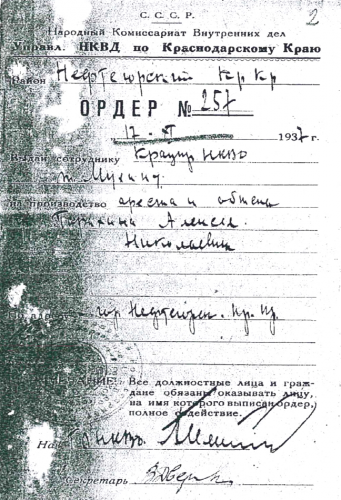 2
С. С. С. Р.
Народный Комиссариат Внутренних дел
Управл. НКВД по Краснодарскому Краю
Район Нефтегорский Кр Кр
ОРДЕР № 257
193 г.
Выдан сотруднику НКВД
т. Мухину
на производство ареста и обыска
Алексея
Николаевича
гор Нефтегорск. Кр. Кр.
Все должностные лица и граж-
дане обязаны оказывать лицу,
на имя которого выписан ордер,
полное содействие.
На НКВД
Секретарь